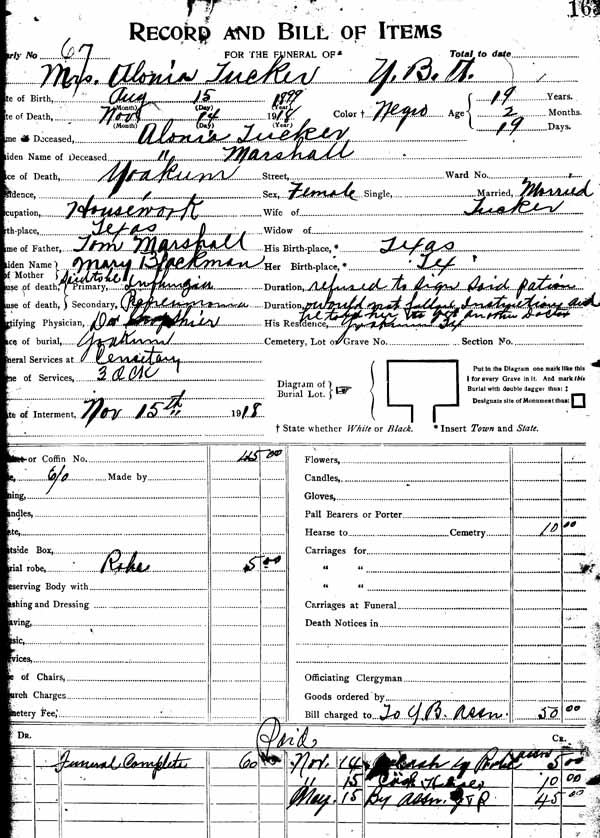 163
RECORD AND BILL OF ITEMS
rly No 67 FOR THE FUNERAL OF* Total to date
Mrs. Alonia Tucker Y. B. A.
te of Birth, Aug 15 1899
(Month) (Day) (Year)
te of Death, Nov 14 1918 Color † Negro Age 19 Years.
2 Months.
19 Days.
(Month) (Day) (Year)
me of Deceased, Alonia Tucker
iden Name of Deceased " Marshall
ce of Death, Yoakum Street, Ward No.
sidence, Sex, Female Single, Married, Married
cupation, Housework Wife of Tucker
rth-place, Texas Widow of
me of Father, Tom Marshall His Birth-place,* Texas
aiden Name of Mother Mary Blackman Her Birth-place,* Tex
use of death, Primary, Duration, refused to sign said patien
use of death, Secondary, Duration, would not follow Instructions and
he told her to get another Doctor
rtifying Physician, Dr His Residence, Yoakum Tex
ace of burial, Yoakum Cemetery, Lot or Grave No. Section No.
neral Services at Cemetery
me of Services, 3 Ock
Diagram of Burial Lot.
Put in the Diagram one mark like this
I for every Grave in it. And mark this
Burial with double dagger thus: ‡
Designate site of Monument thus:
te of Interment, Nov 15th 1918
† State whether White or Black. * Insert Town and State.
or Coffin No. 45 00 Flowers,
6/0 Made by Candles,
ning, Gloves,
ndles, Pall Bearers or Porter
ate, Hearse to Cemetry 10 00
tside Box, Carriages for
rial robe, Robe 5 00 " "
eserving Body with " "
ashing and Dressing Carriages at Funeral
aving, Death Notices in
sic,
rvices,
e of Chairs, Officiating Clergyman
urch Charges Goods ordered by
metery Fee, Bill charged to To Y. B. Assn. 50 00
DR. Paid CR.
Funeral Complete 60 Nov. 14 Cash 5 00
" 15 10 00
May. 15 By Assn. 45 00